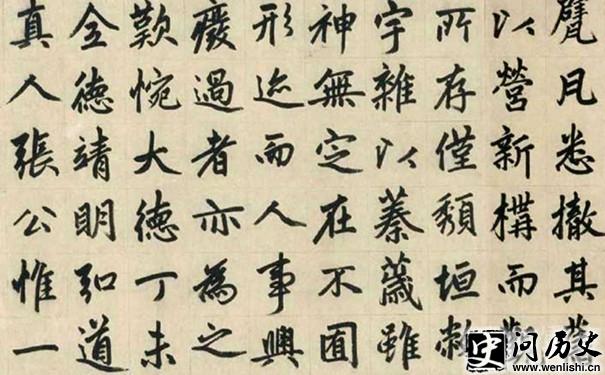 甓凡悉撤其
以營新構而
所存僅頹垣敝
宇雜以蓁薉雖
神無定在不囿
形迹而人事興
廢過者亦為之
歎惋大德丁未
全德靖明弘道
真人張公惟一
问历史
www.wenlishi.cn